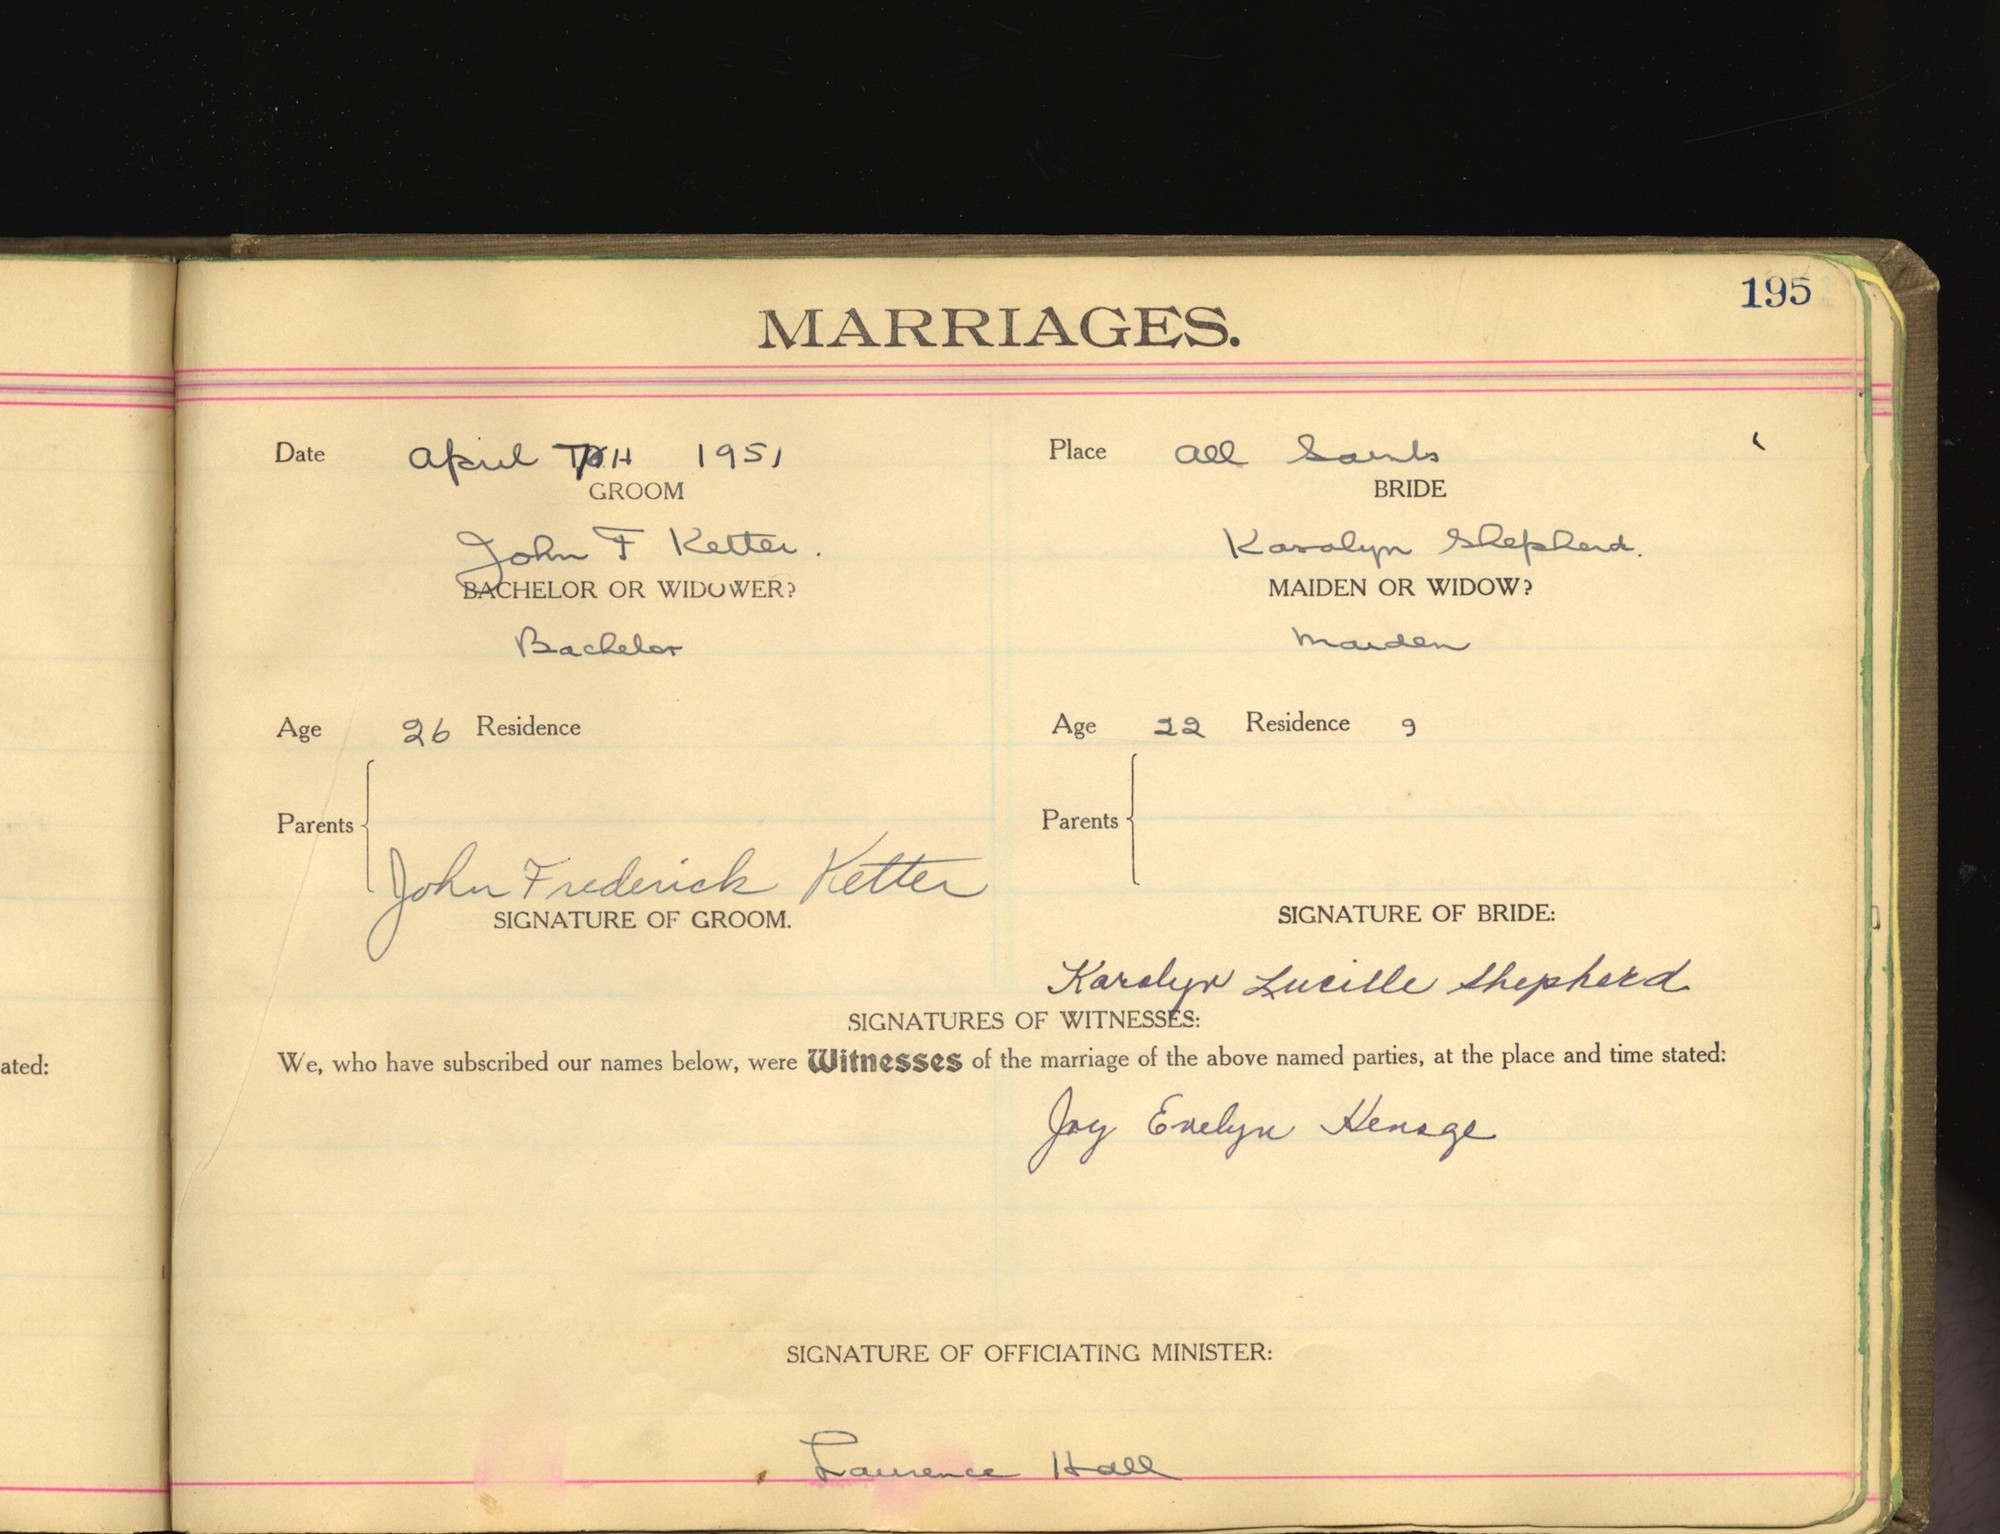 195
MARRIAGES.
Date April 1951 Place All Saints
GROOM BRIDE
John F Ketter. Karolyn Shepherd.
BACHELOR OR WIDOWER? MAIDEN OR WIDOW?
Bachelor Maiden
Age 26 Residence Age 22 Residence ?
Parents Parents
John Frederick Ketter
SIGNATURE OF GROOM. SIGNATURE OF BRIDE:
Karolyn Lucille Shepherd
SIGNATURES OF WITNESSES:
ated: We, who have subscribed our names below, were Witnesses of the marriage of the above named parties, at the place and time stated:
Joy Evelyn Henage
SIGNATURE OF OFFICIATING MINISTER:
Laurence Hall